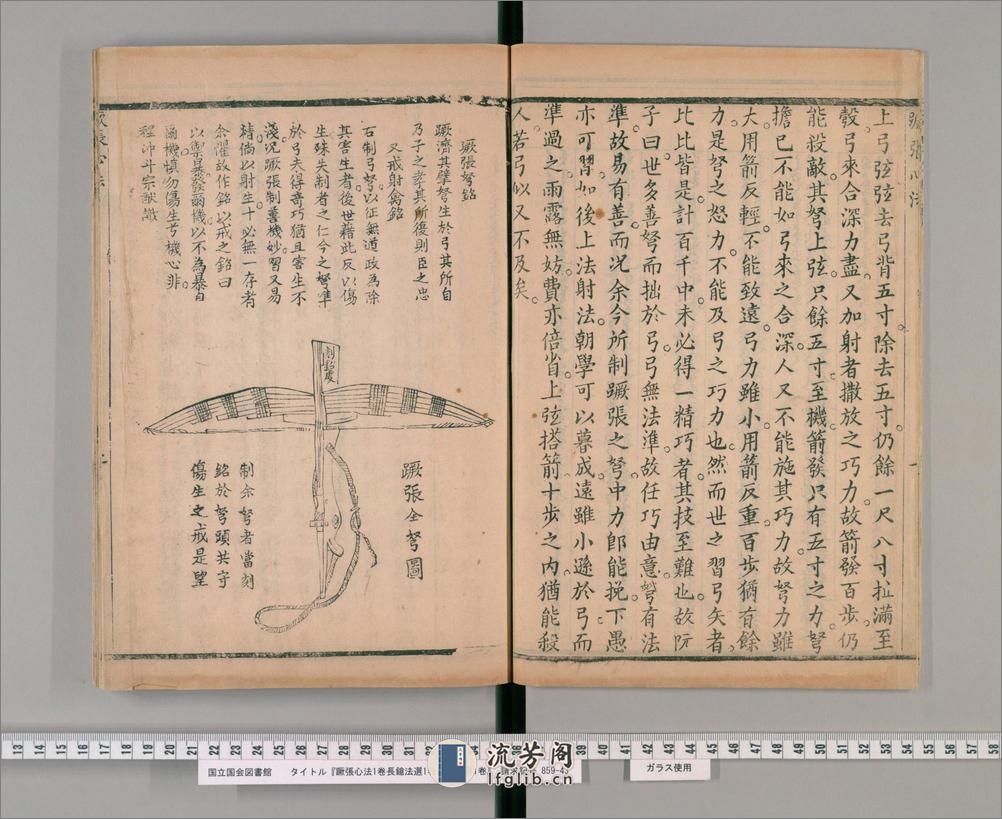 蹶張心法
一
上弓弦弦去弓背五寸除去五寸仍餘一尺八寸拉滿至
彀弓來合深力盡又加射者撒放之巧力故箭發百步仍
能殺敵其弩上弦只餘五寸至機箭發只有五寸之力弩
擔已不能如弓來之合深人又不能施其巧力故弩力雖
大用箭反輕不能致遠弓力雖小用箭反重百步猶有餘
力是弩之怒力不能及弓之巧力也然而世之習弓矢者
比比皆是計百千中未必得一精巧者其技至難也故阮
子曰世多善弩而拙於弓弓無法準故任巧由意弩有法
準故易有善而况余今所制蹶張之弩中力郎能挽下愚
亦可習如後上法射法朝學可以暮成遠雖小遜於弓而
準過之雨露無妨費亦倍省上弦搭箭十步之內猶能殺
人若弓似又不及矣
蹶張弩銘
蹶濟其擘弩生於弓其所自
乃子之孝其所復則臣之忠
又戒射禽銘
古制弓弩以征無道政為除
其害生者後世藉此反以傷
生殊失制者之仁今之弩準
於弓夫得奇巧猶且害生不
淺况蹶張制善機妙習又易
精倘以射生十必無一存者
余懼故作銘以戒之銘曰
以禦暴發爾機以不為暴自
爾機慎勿傷生芳機心非
程沖斗宗猷識
蹶張全弩圖
制余弩者當刻
銘於弩頭共守
傷生之戒是望
蹶張心法
国立国会図書館 タイトル『蹶張心法1巻長鎗法選1 1巻 請求記号 859-43
ガラス使用
流芳阁
lfglib.cn
13 14 15 16 17 18 19 20 21 22 23 24 25 26 27 28 29 30 31 32 39 40 41 42 43 44 45 46 47 48 49 50 51 52 53 54 55 56 57 58